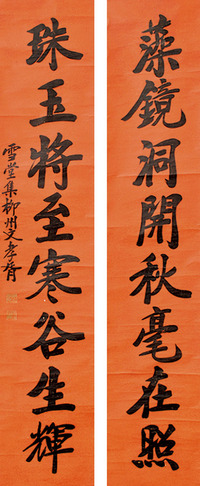 藻鏡洞開秋毫在照
珠玉將至寒谷生輝
雪堂集柳州文孝胥